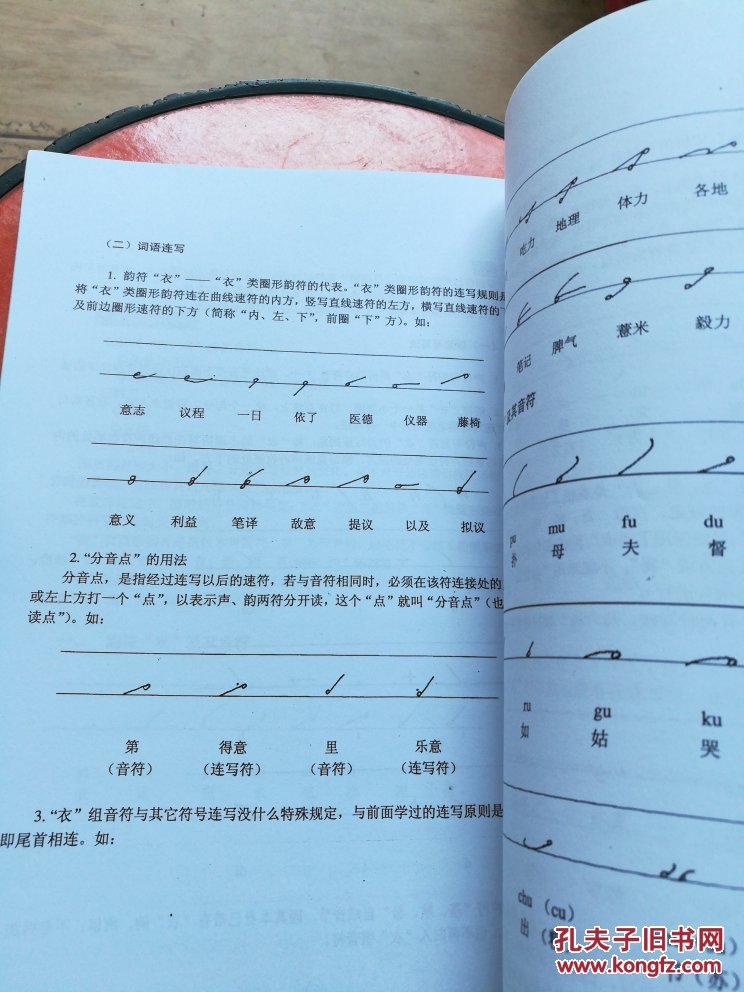 （二）词语连写
1. 韵符“衣”——“衣”类圈形韵符的代表。“衣”类圈形韵符的连写规则是
将“衣”类圈形韵符连在曲线速符的内方，竖写直线速符的左方，横写直线速符的下
及前边圈形速符的下方（简称“内、左、下”，前圈“下”方）。如：
意志 议程 一日 依了 医德 仪器 藤椅
意义 利益 笔译 敌意 提议 以及 拟议
2. “分音点”的用法
分音点，是指经过连写以后的速符，若与音符相同时，必须在该符连接处的
或左上方打一个“点”，以表示声、韵两符分开读，这个“点”就叫“分音点”（也
读点”）。如：
第 得意 里 乐意
（音符） （连写符） （音符） （连写符）
3. “衣”组音符与其它符号连写没什么特殊规定，与前面学过的连写原则是
即尾首相连。如：
吃力 地理 体力 各地
笔记 脾气 薏米 毅力
及其音符
pu mu fu du
扑 母 夫 督
ru gu ku
如 姑 哭
chu （cu）
出
（苏）
孔夫子旧书网
www.kongfz.com